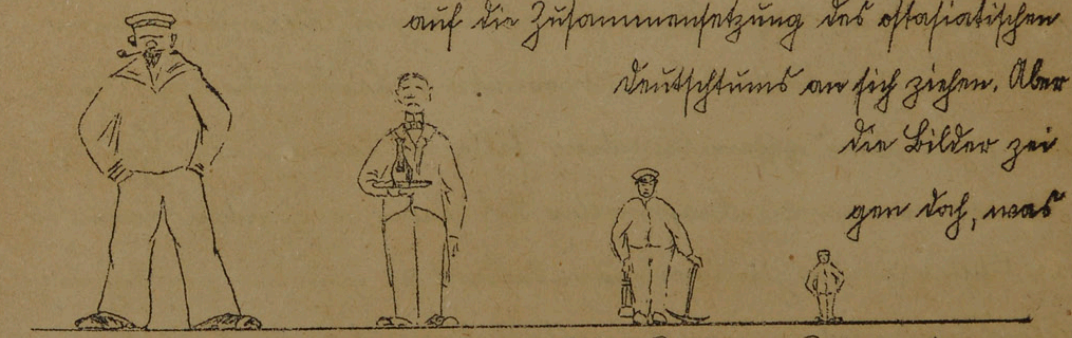 auf die Zusammensetzung des ostasiatischen
Deutschtums an sich ziehen. Aber
die Bilder zei
gen doch, was